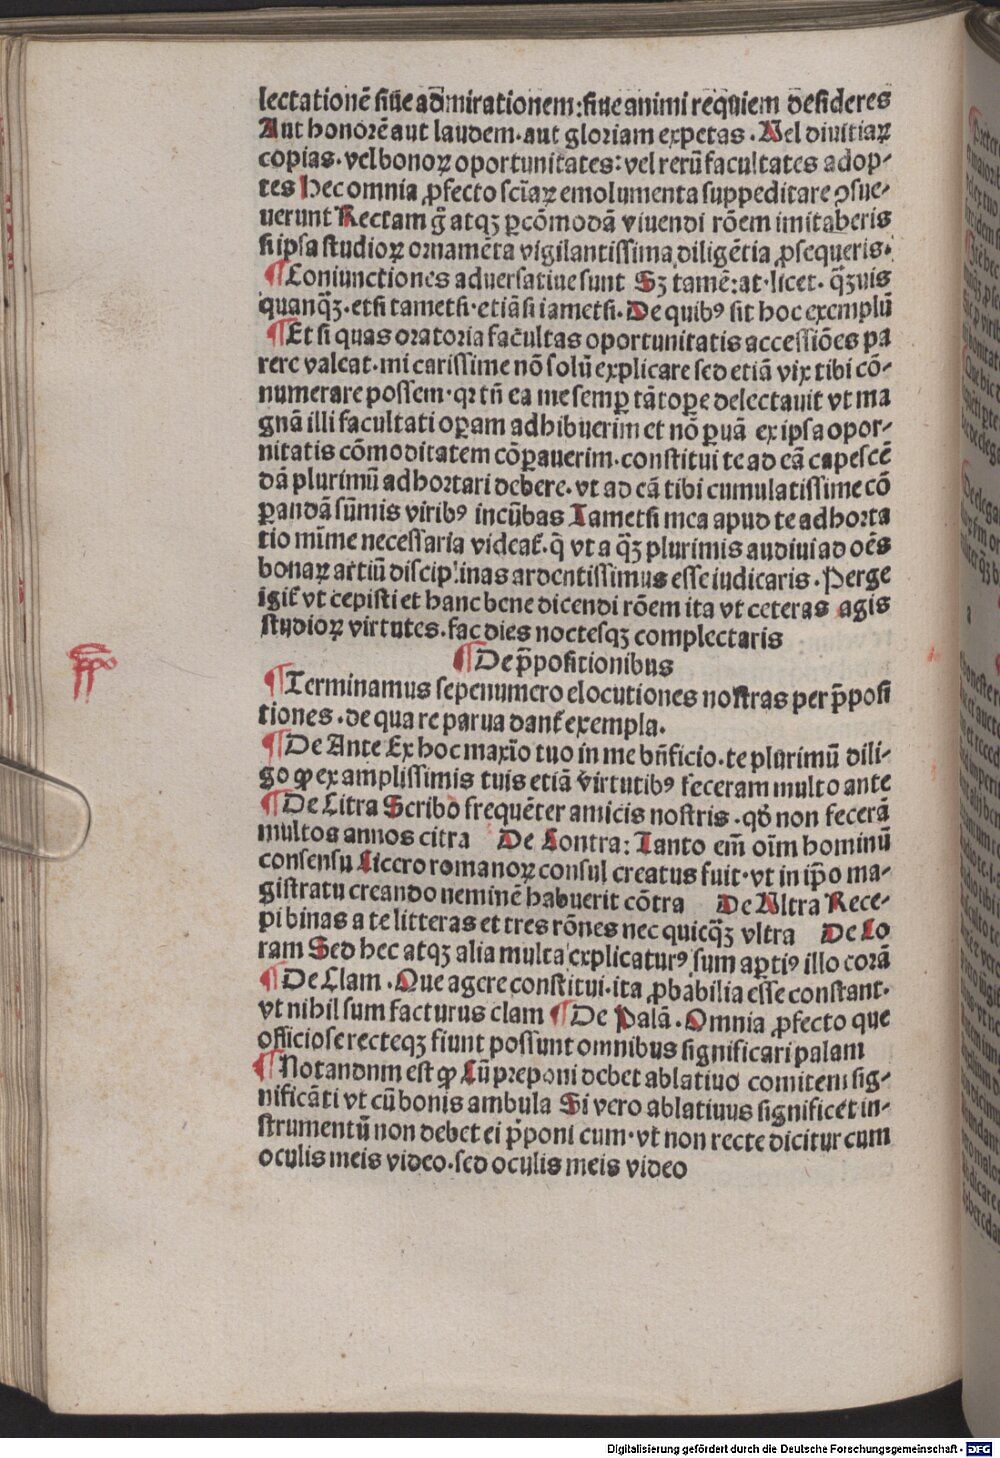 lectationē siue admirationem: siue animi requiem desideres
Aut honorē aut laudem. aut gloriam expetas. Uel diuitiaꝝ
copias. vel bonoꝝ oportunitates: vel rerū facultates adop-
tes hec omnia ꝓfecto sciāꝝ emolumenta suppeditare ↄsue-
uerunt Rectam g̃ atqꝫ ꝑcōmodā viuendi rōem imitaberis
si ipsa studioꝝ ornamēta vigilantissima diligētia ꝓsequeris.
¶ Coniunctiones aduersatiue sunt Sꝫ tamē: at. licet. q̄ꝫuis
quanq̄ꝫ. etsi tametsi. etiāsi iametsi. De quibꝰ sit hoc exemplū
¶ Et si quas oratoria facultas oportunitatis accessiōes pa
rere valeat. mi carissime nō solū explicare sed etiā vix tibi cō-
numerare possem. qꝛ tñ ea me semꝑ tātoꝑe delectauit vt ma
gnā illi facultati oꝑam adhibuerim et nō ꝑuā ex ipsa opor-
nitatis cōmoditatem cōꝑauerim. constitui te ad eā capescē
dā plurimū adhortari debere. vt ad eā tibi cumulatissime cō
ꝑandā sūmis viribꝰ incūbas Tametsi mea apud te adhorta
tio mīme necessaria videat᷑. q̄ vt a q̄ꝫ plurimis audiui ad oēs
bonaꝝ artiū disciplinas ardentissimus esse iudicaris. Perge
igit᷑ vt cepisti et hanc bene dicendi rōem ita vt ceteras agis
studioꝝ virtutes. fac dies noctesqꝫ complectaris
¶ De p̄positionibus
ppo
¶ Terminamus sepenumero elocutiones nostras per p̄posi
tiones. de qua re parua dant᷑ exempla.
¶ De Ante Ex hoc maxīo tuo in me bn̄ficio. te plurimū dili-
go ꝙ ex amplissimis tuis etiā virtutibꝰ feceram multo ante
¶ De Citra Scribo frequēter amicis nostris. qd̄ non fecerā
multos annos citra De Contra: Tanto em̄ oīm hominū
consensu Cicero romanoꝝ consul creatus fuit. vt in ip̄o ma-
gistratu creando neminē habuerit cōtra De Ultra Rece-
pi binas a te litteras et tres rōnes nec quicq̄ꝫ vltra De Co
ram Sed hec atqꝫ alia multa explicaturꝰ sum aꝑtiꝰ illo corā
¶ De Clam. Que agere constitui. ita ꝓbabilia esse constant.
vt nihil sum facturus clam ¶ De Palā. Omnia ꝓfecto que
officiose recteqꝫ fiunt possunt omnibus significari palam
¶ Notandnm est ꝙ Cū preponi debet ablatiuo comitem sig-
nificāti vt cū bonis ambula Si vero ablatiuus significet in-
strumentū non debet ei p̄poni cum. vt non recte dicitur cum
oculis meis video. sed oculis meis video
Digitalisierung gefördert durch die Deutsche Forschungsgemeinschaft - DFG